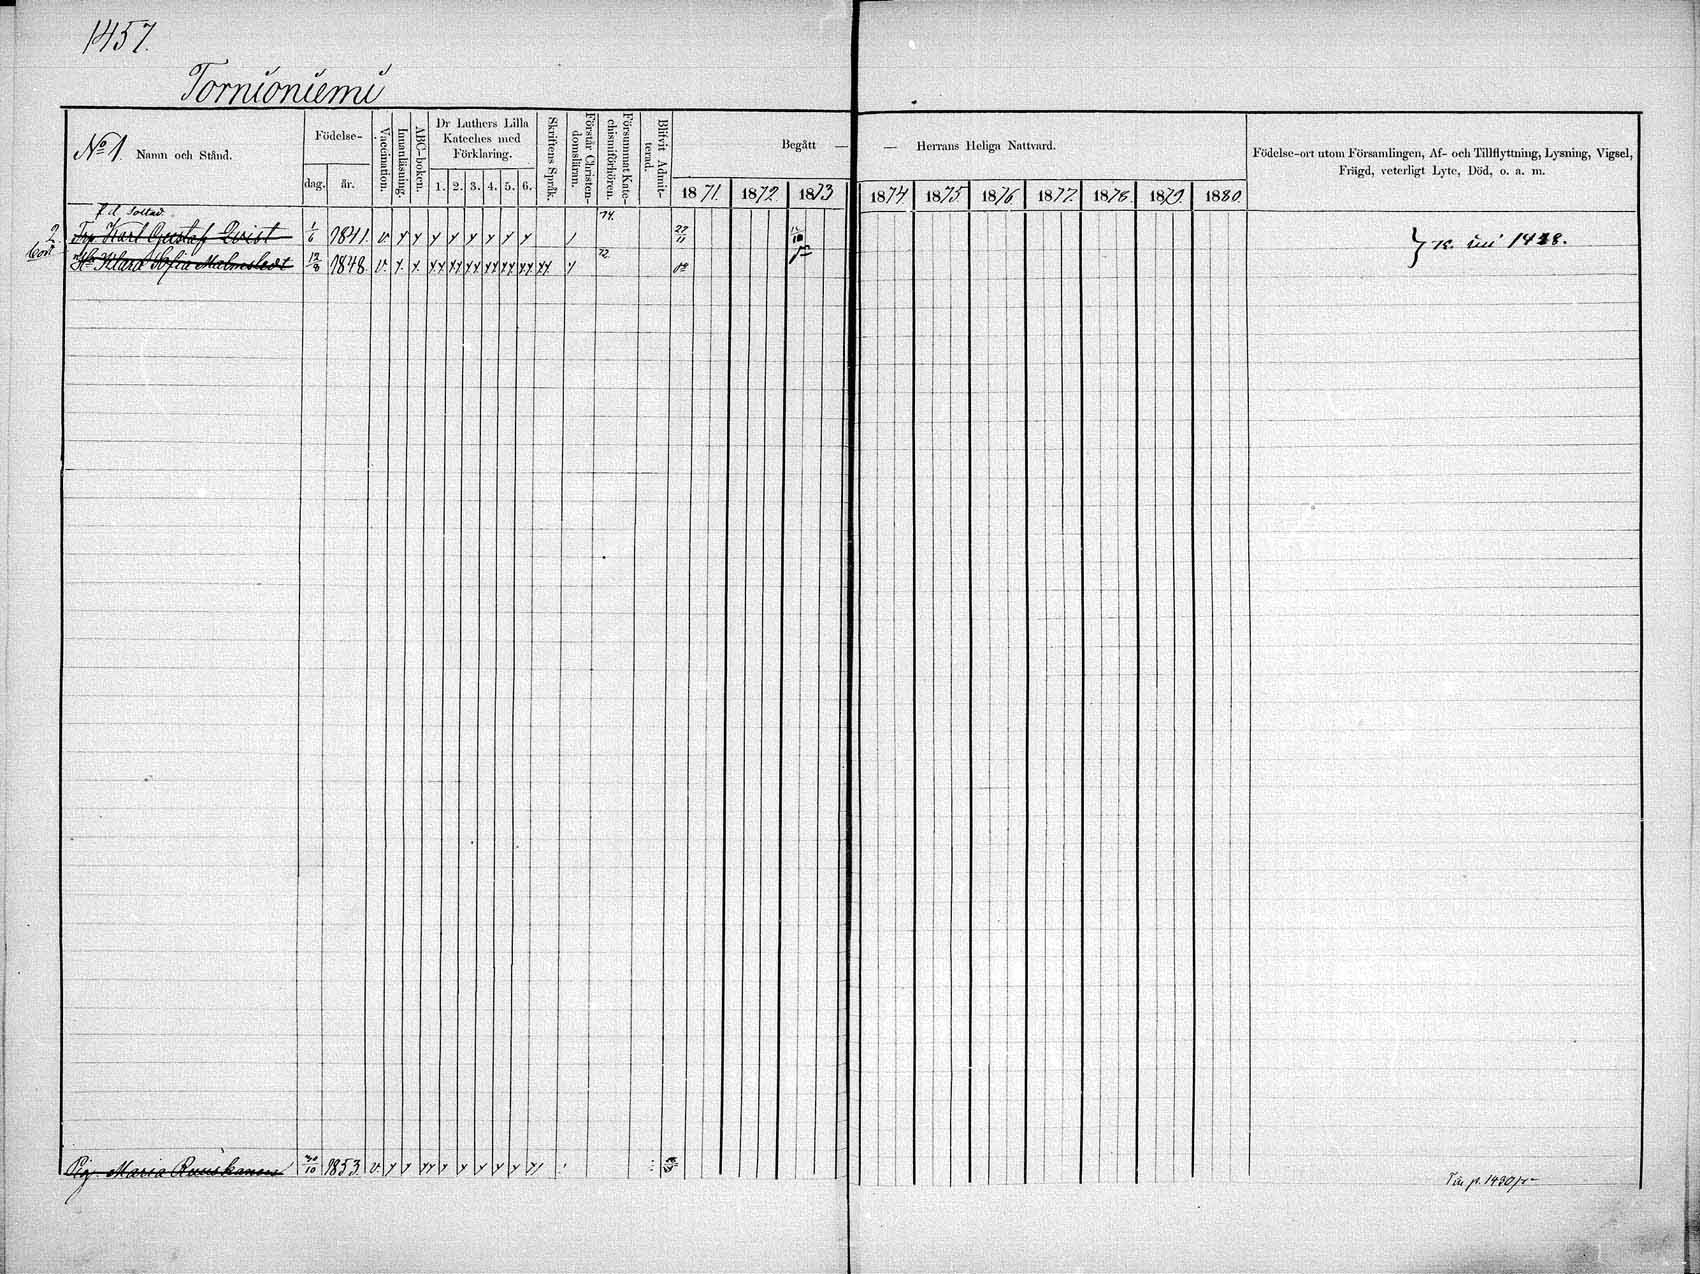 1457.
Tornioniemi
No 1. Namn och Stånd.
Födelse-
dag. år.
Vaccination.
Innanläsning.
ABC-boken.
Dr Luthers Lilla
Kateches med
Förklaring.
1. 2. 3. 4. 5. 6.
Skriftens Språk.
Förstår Christen-
domsläran.
Försummat Kate-
chismiförhören.
Blifvit Admit-
terad.
Begått — — Herrans Heliga Nattvard.
1871. 1872. 1873 1874 1875. 1876 1877. 1878. 1879. 1880.
Födelse-ort utom Församlingen, Af- och Tillflyttning, Lysning, Vigsel,
Frägd, veterligt Lyte, Död, o. a. m.
f. d. Soldat
2. Karl Gustaf Qvist 1/6 1841. v. 74. 27/11
Hu Klara Sofia Malmstedt 12/8 1848. v. 72
Pig. Maria Ruuskanen 30/10 1853. v.